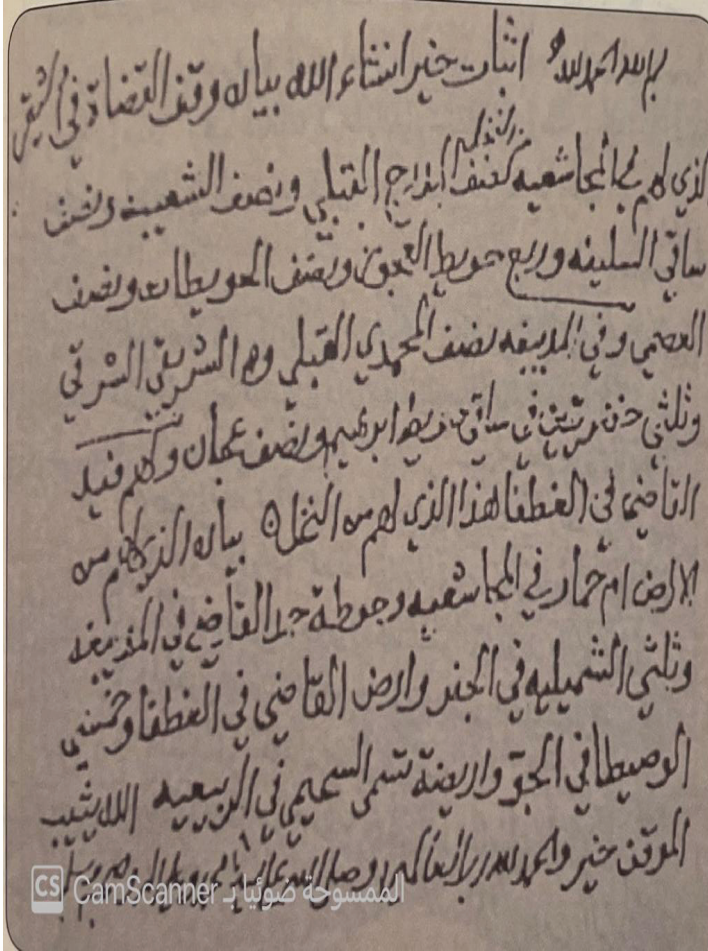 بسم الله الحمد لله اثبات خير انشاء الله بيان وقف القضاة في الشقير
الذي لهم في المجاشعيه كنصف القبلي ونصف الشعيبيه ونصف
ساقي السلينه وربع حويط العجوز ونصف الحويطات ونصف
العصمي وفي المديفعه نصف المحمدي القبلي وهو الشريقي الشرقي
وثلثي في ساقي حويط ابراهيم ونصف عجلان وكلهم فيد
القاضي في الغطفا هذا الذي لهم من النخل بيان الذي لهم من
الارض ام حمار في المجاشعيه وحوطة القاضي في المديفعه
وثلثي الشميليه في الجند وارض القاضي في الغطفا وخمسي
الوصيطا في الجو واريضة تسمى السميمي في الربيعيه الله يثيب
الموقف خير والحمد لله رب العالمين وصلى الله على محمد واله وصحبه وسلم
CS الممسوحة ضوئيا بـ CamScanner